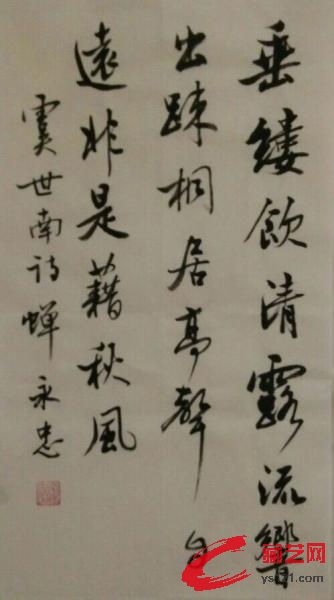 垂縷飲清露流響
出踈桐居高聲自
遠非是藉秋風
虞世南诗蝉 永忠
藏艺网